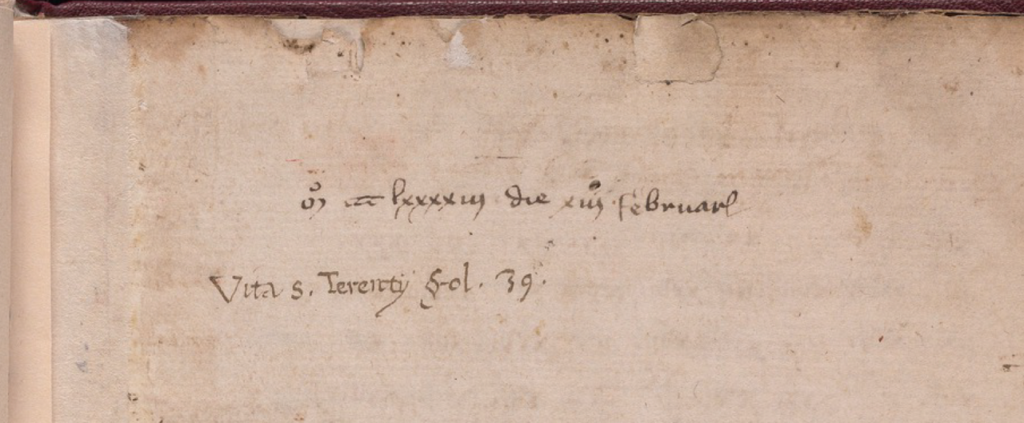 lxxxxiij die xiiij februarl
Vita s. Terentij Fol. 39.